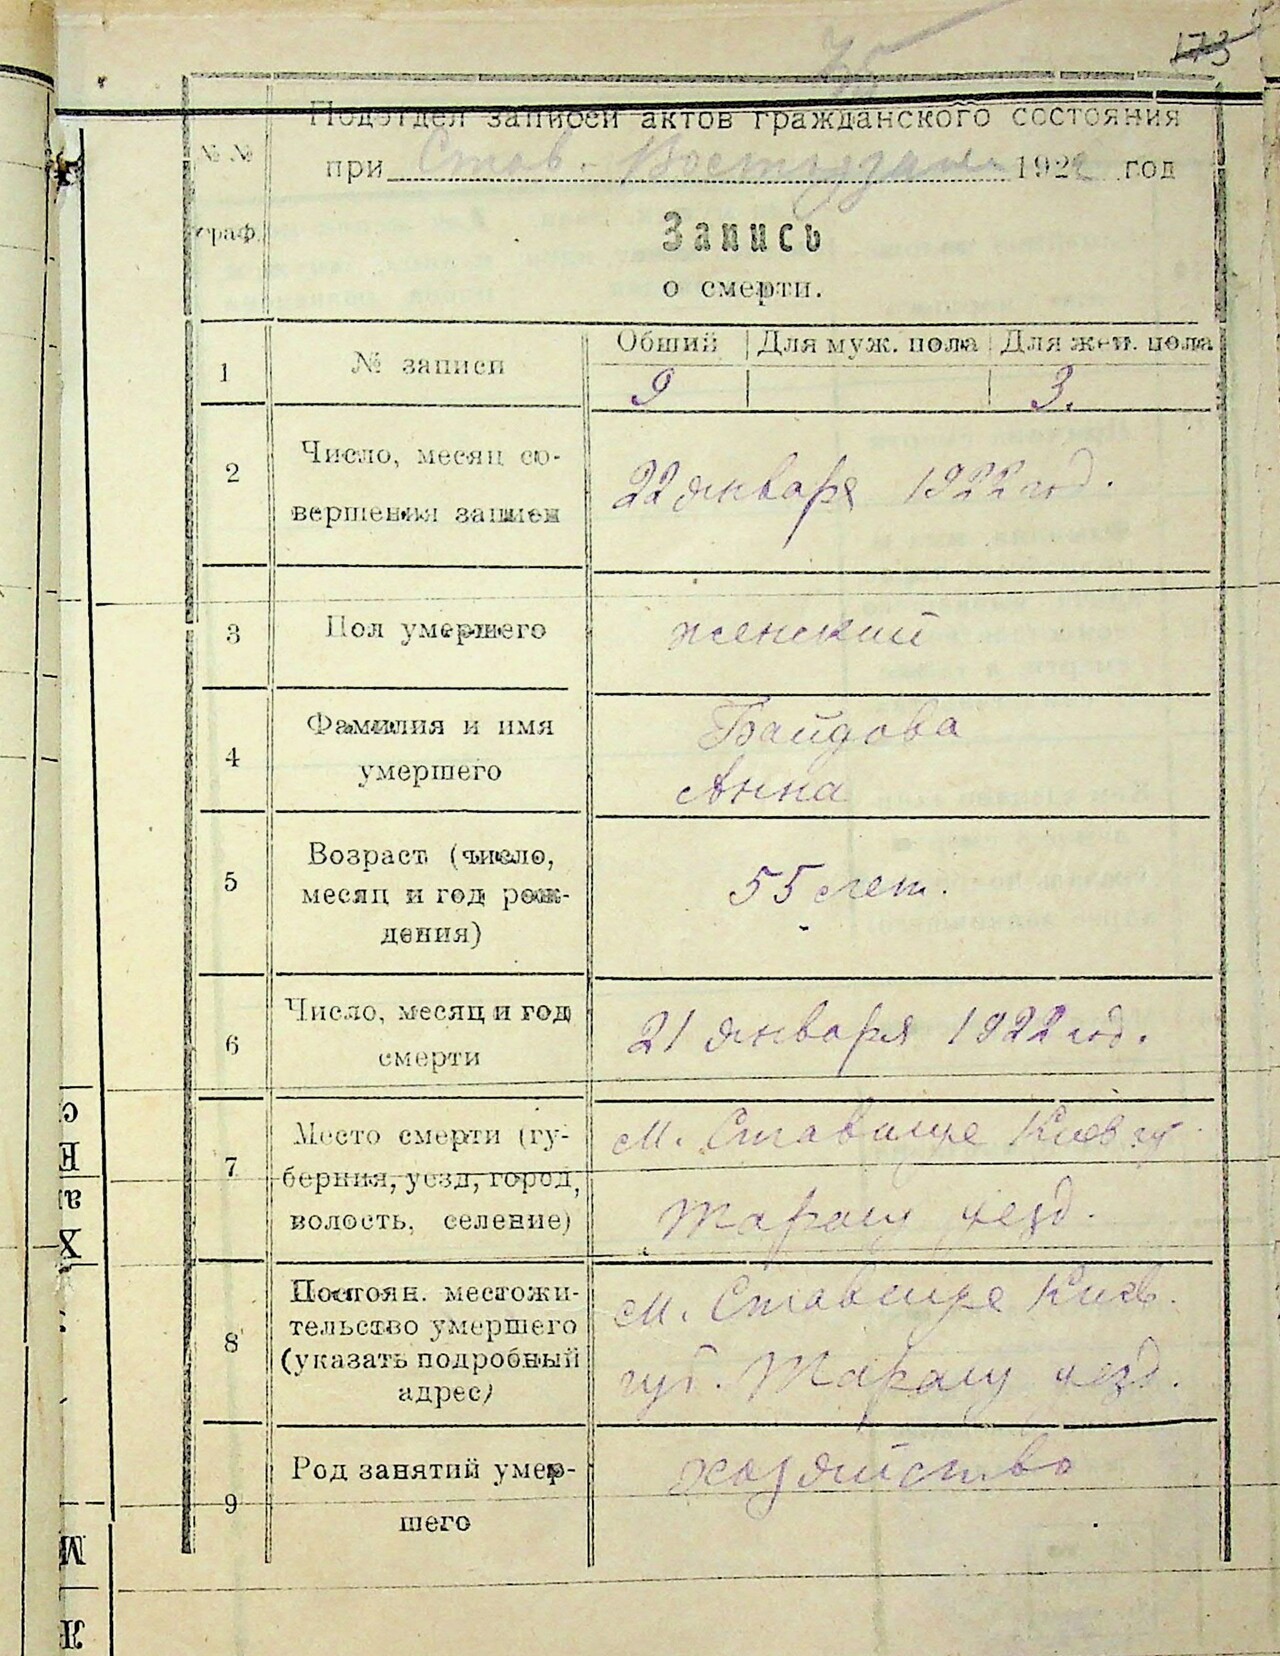 173
Подотдел записси актов гражданского состояния
при Став. 1922 год
№ № граф.
Запись
о смерти.
1 № записи Обший Для муж. пола Для жен. пола
9 3.
2 Число, месяц со-
вершения записи 22 января 1922 год.
3 Пол умершего женский
4 Фамилия и имя Байдова
умершего Анна
5 Возраст (число,
месяц и год рож-
дения) 55 лет.
6 Число, месяц и год
смерти 21 января 1922 год.
7 Место смерти (гу- м. Ставище Киев гу
берния, уезд, город,
волость, селение) Таращ уезд.
8 Постоян. местожи- м. Ставище Киев.
тельство умершего
(указать подробный губ. Таращ уезд.
адрес)
9 Род занятий умер- хозяйство
шего